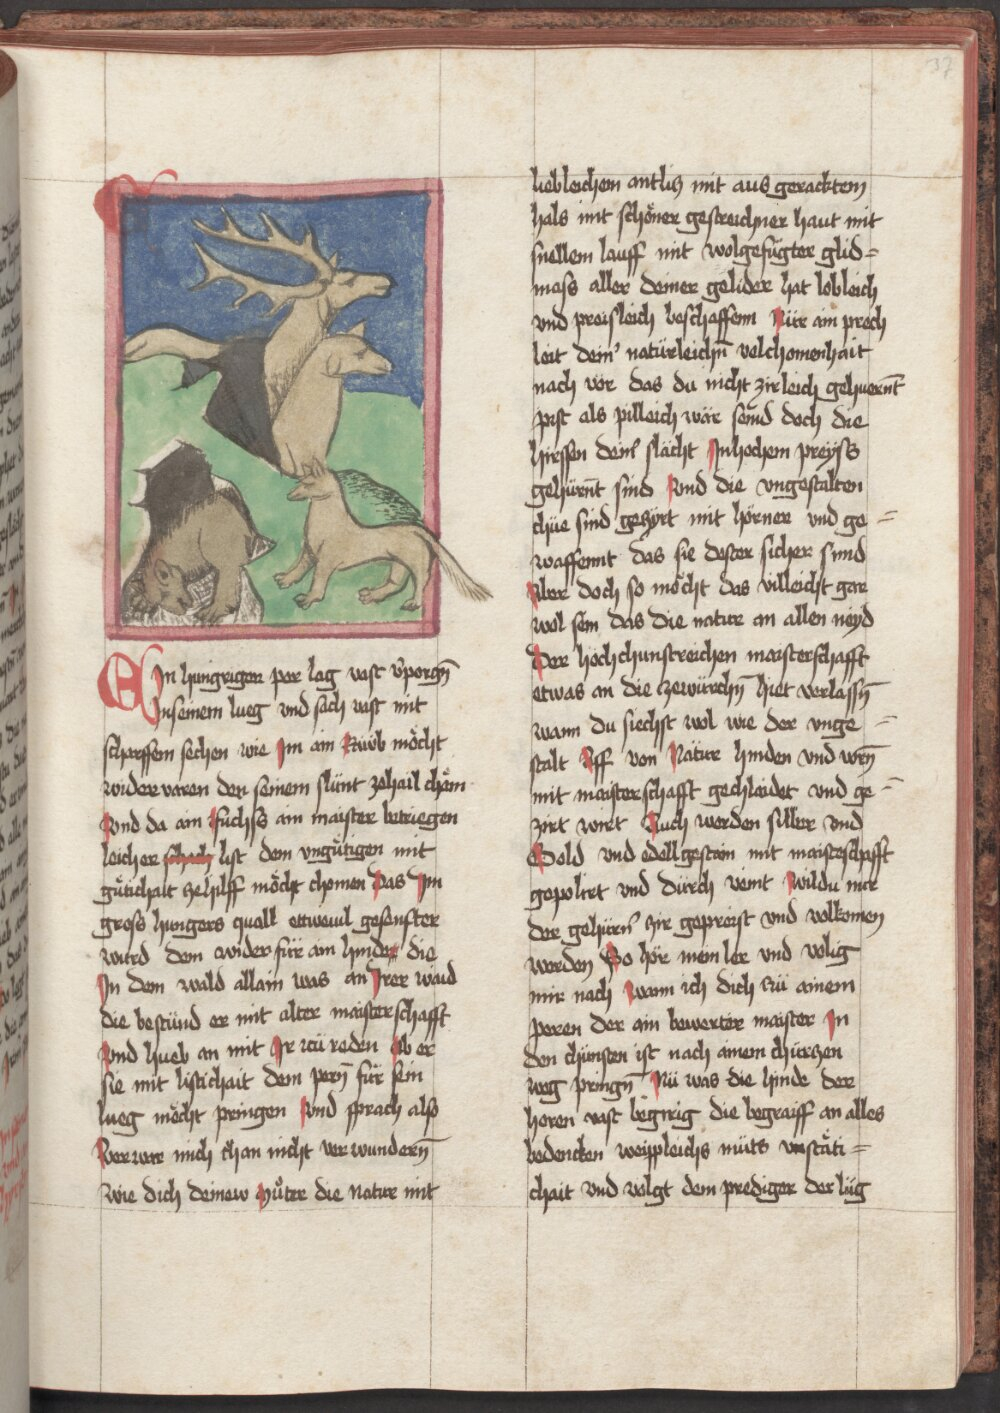 37
Ein hungriger per lag vast v̄porgn̄
Inseinem lueg vnd sach vast mit
scharffem sechen wie Im ain Rawb möcht
widervaren der seinem slünt zehail chäm
Vnd da ain fuchss ain maister betriegen
leicher schach list dem vngütigen mit
gütichait zehilff möcht chomen das Im
gross hungers quall ettwevil gesenfter
wurd dem widerfür ain hinder die
In dem wald allain was an Irer waid
die bestünd er mit alter maisterschafft
Vnd hueb an mit Ir zü reden Ob er
sie mit listichait dem pern̄ für sein
lueg möcht pringen Vnd sprach also
Verwar mich chan nicht verwundern̄
wie dich deinew Müter die natur mit
liebleichem antlitz mit aus geracktem
hals mit schöner gestreichner haut mit
snellem lauff mit wolgefügter glid=
mass aller deiner gelider hat lobleich
vnd preisleich beschaffenn Nür ain prech
leit dein' natürleichn̄ volchomenhait
nach vor das du nicht zirleich gehuernt
pist als pilleich wär seind doch die
hirssen dein' slächt Inhochem preyss
gehürnt sind Vnd die vngestalten
chüe sind gezyrt mit hörner vnd ge=
waffennt das sie dester sicher sinnd
Aber doch so möcht das villeicht gar
wol sein das die natur an allen neyd
Der hochchunstreichen maisterschafft
etwas an die zewürchn̄ hiet verlassn̄
wann du siechst wol wie der vnge=
stalt Aff von Natur hinden vnd vorn̄
mit maisterschafft gechlaidet vnd ge=
zirt wirt Auch werden silber vnd
Gold vnd edellgestain mit maisterschafft
gepolirt vnd dürch veint wildu nür
der gehürn' zir gepreist vnd volkomen
werden So hör mein ler vnd volig
mir nach wann ich dich zü ainem
peren der ain bewerter maister In
den chünsten ist nach ainem churtzen
weg pringn̄ Nü was die hinde der
horen vast begirig die begraiff an alles
bedencken weippleichs müts vnstäti=
chait vnd volgt dem prediger der lüg